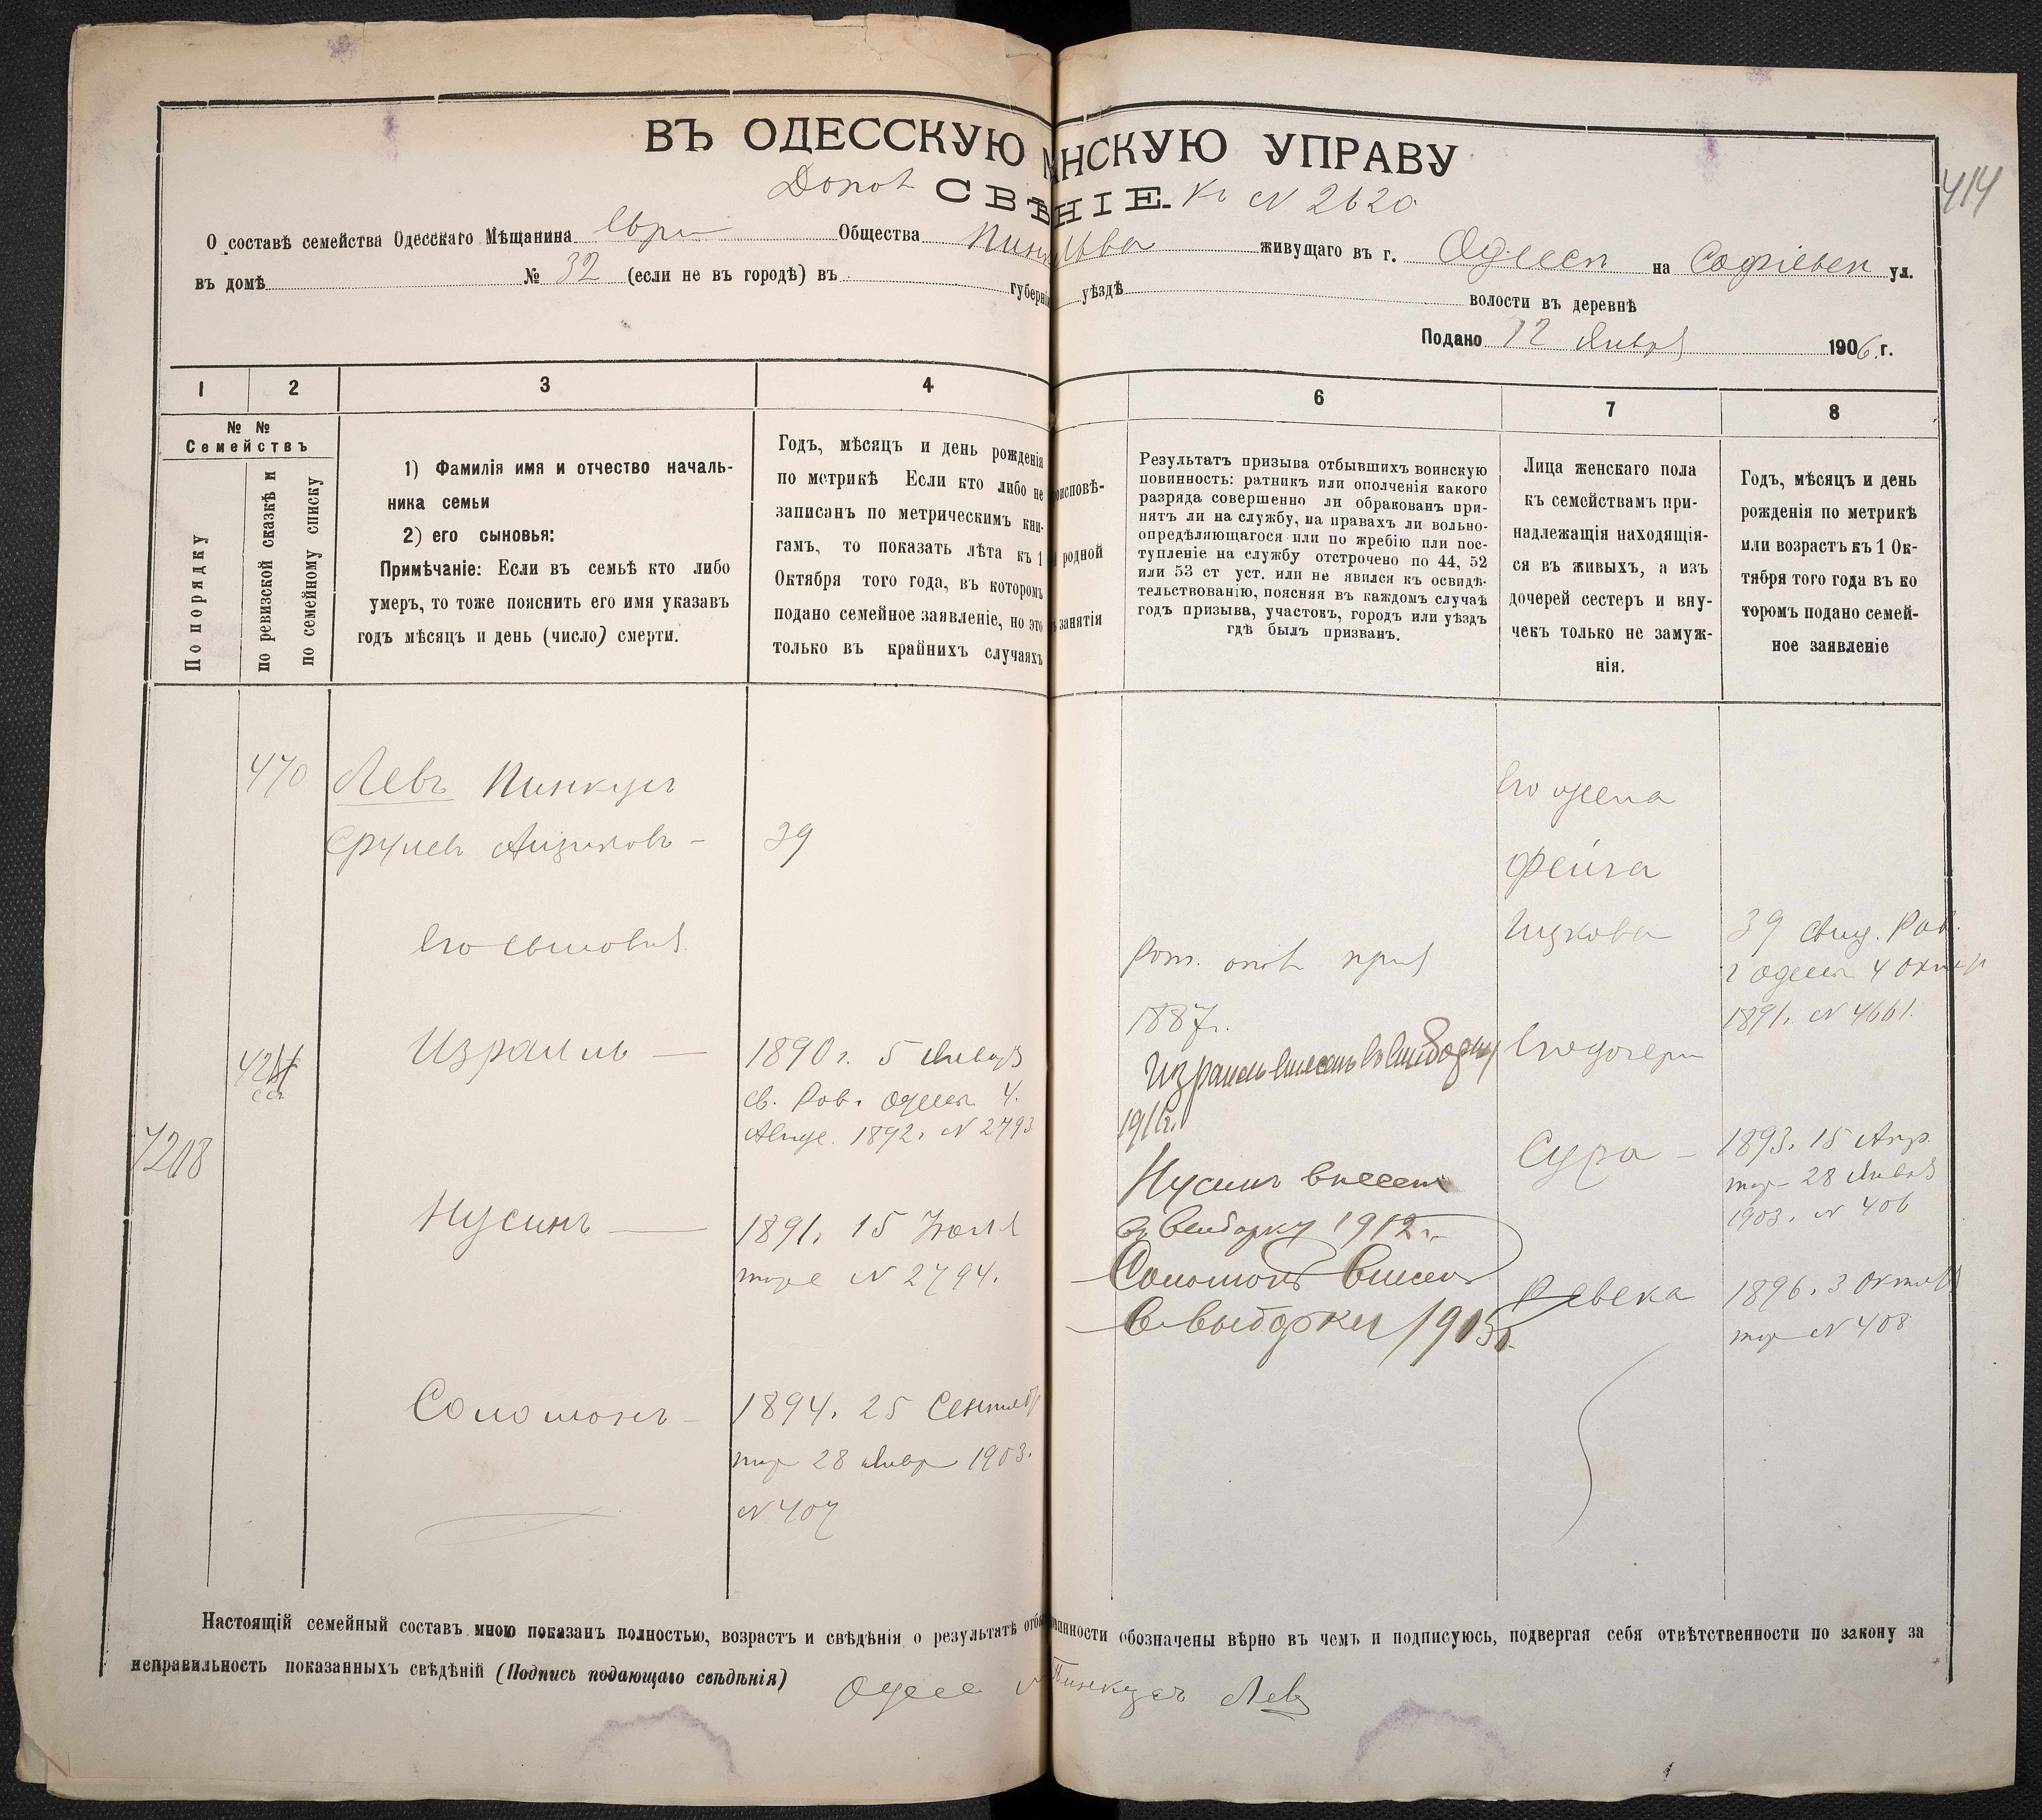 ВЪ ОДЕССКУЮ НСКУЮ УПРАВУ
414
Допол СВѢ НІЕ. Къ N 2620
О составѣ семейства Одесскаго Мѣщанина Евр Общества Пинк Льва живущаго въ г. Одессѣ на Софіевск ул.
въ домѣ № 32 (если не въ городѣ) въ губерніи уѣздѣ волости въ деревнѣ
Подано 12 Января 1906 г.
1 2 3 4 6 7 8
№ №
Семействъ
По порядку
по ревизской сказкѣ и
по семейному списку
1) Фамилія имя и отчество началь-
ника семьи
2) его сыновья:
Примѣчаніе: Если въ семьѣ кто либо
умеръ, то тоже пояснить его имя указавъ
годъ мѣсяцъ и день (число) смерти.
Годъ, мѣсяцъ и день рожденія
по метрикѣ Если кто либо не
записанъ по метрическимъ кни-
гамъ, то показать лѣта къ 1
Октября того года, въ которомъ
подано семейное заявленіе, но это
только въ крайнихъ случаяхъ
роисповѣ-
родной
занятія
Результатъ призыва отбывшихъ воинскую
повинность: ратникъ или ополченія какого
разряда совершенно ли обракованъ при-
нятъ ли на службу, на правахъ ли вольно-
опредѣляющагося или по жребію или пос-
тупленіе на службу отстрочено по 44, 52
или 53 ст уст. или не явился къ освидѣ-
тельствованію, поясняя въ каждомъ случаѣ
годъ призыва, участокъ, городъ или уѣздъ
гдѣ былъ призванъ.
Лица женскаго пола
къ семействамъ при-
надлежащія находящія-
ся въ живыхъ, а изъ
дочерей сестеръ и вну-
чекъ только не замуж-
нія.
Годъ, мѣсяцъ и день
рожденія по метрикѣ
или возрастъ къ 1 Ок-
тября того года въ ко
торомъ подано семей-
ное заявленіе
470
Левъ Пинкусъ
Срулев Айзиковъ - 39
его сыновья
Израиль — 1890 г. 5 Января
св. Рав. Одесск 4.
1892. N 2793
7208
Нусинъ — 1891. 15 Іюля
тоже N 2794.
Соломонъ - 1894. 25 Сентяб
тоже 28 Январ 1903.
N 407
Рат. опол приз
1887г.
Израиль внесенъ въ выборку
Нусинъ внесен
въ выборку 1912 г.
Соломонъ внесен
в выборку
его жена
Фейга
Ицкова 39
Рав.
г Одессы 4 Октяб
1891. N 4661.
его дочери
Сура - 1893. 15 Апр.
тоже 28 Января
1903. N 406
Ревека 1896. 3 Октяб
тоже N 408
Настоящій семейный составъ мною показанъ полностью, возрастъ и свѣдѣнія о результатѣ отбы винности обозначены вѣрно въ чемъ и подписуюсь, подвергая себя отвѣтственности по закону за
неправильность показанныхъ свѣдѣній (Подпись подающаго свѣдѣнія) Одесс Пинкусъ Левъ